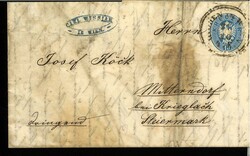 CARL
IN WIEN.
Herrn
Josef Köck
Mitterndorf
bei Krieglach
Steuermark
dringend